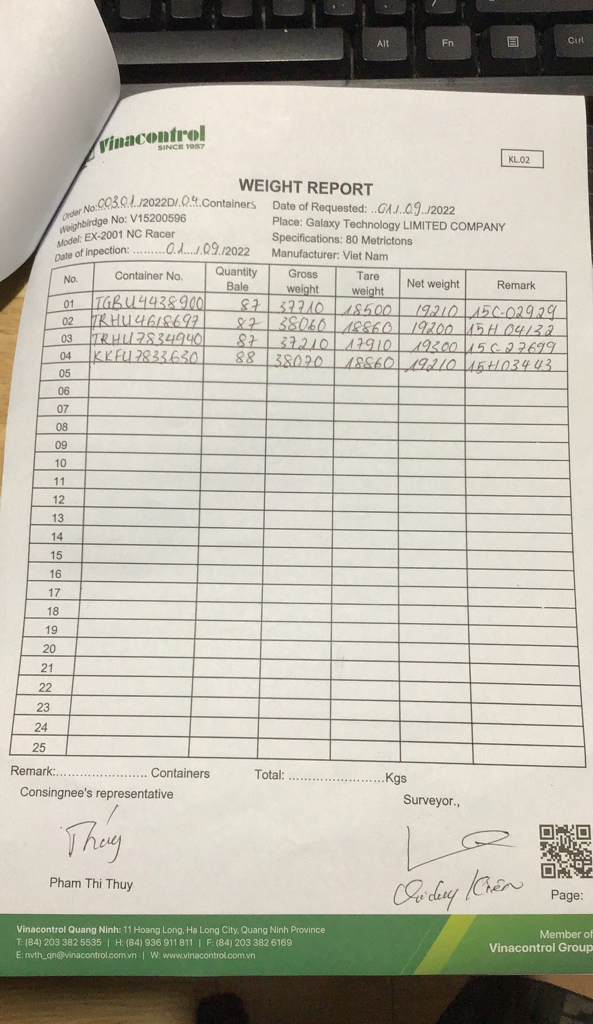 Alt Fn Ctrl
Vinacontrol
SINCE 1957
KL.02
WEIGHT REPORT
Order No: 00301/2022D/.04.Containers
Date of Requested: ..01./.09./2022
Weighbirdge No: V15200596
Place: Galaxy Technology LIMITED COMPANY
Model: EX-2001 NC Racer
Specifications: 80 Metrictons
Date of inpection: .........01../.09./2022
Manufacturer: Viet Nam
No. Container No. Quantity Bale Gross weight Tare weight Net weight Remark
01 TGBU4438900 87 37710 18500 19210 15C-02929
02 TRHU4618697 87 38060 18860 19200 15H 04132
03 TRHU7834940 87 37210 17910 19300 15C-27699
04 KKFU7833630 88 38070 18860 19210 15H03443
05
06
07
08
09
10
11
12
13
14
15
16
17
18
19
20
21
22
23
24
25
Remark:........................ Containers Total: .........................Kgs
Consingnee's representative
Surveyor.,
Thúy
Pham Thi Thuy
Page:
Vinacontrol Quang Ninh: 11 Hoang Long, Ha Long City, Quang Ninh Province
T: (84) 203 382 5535 | H: (84) 936 911 811 | F: (84) 203 382 6169
E: nvth_qn@vinacontrol.com.vn | W: www.vinacontrol.com.vn
Member of
Vinacontrol Group